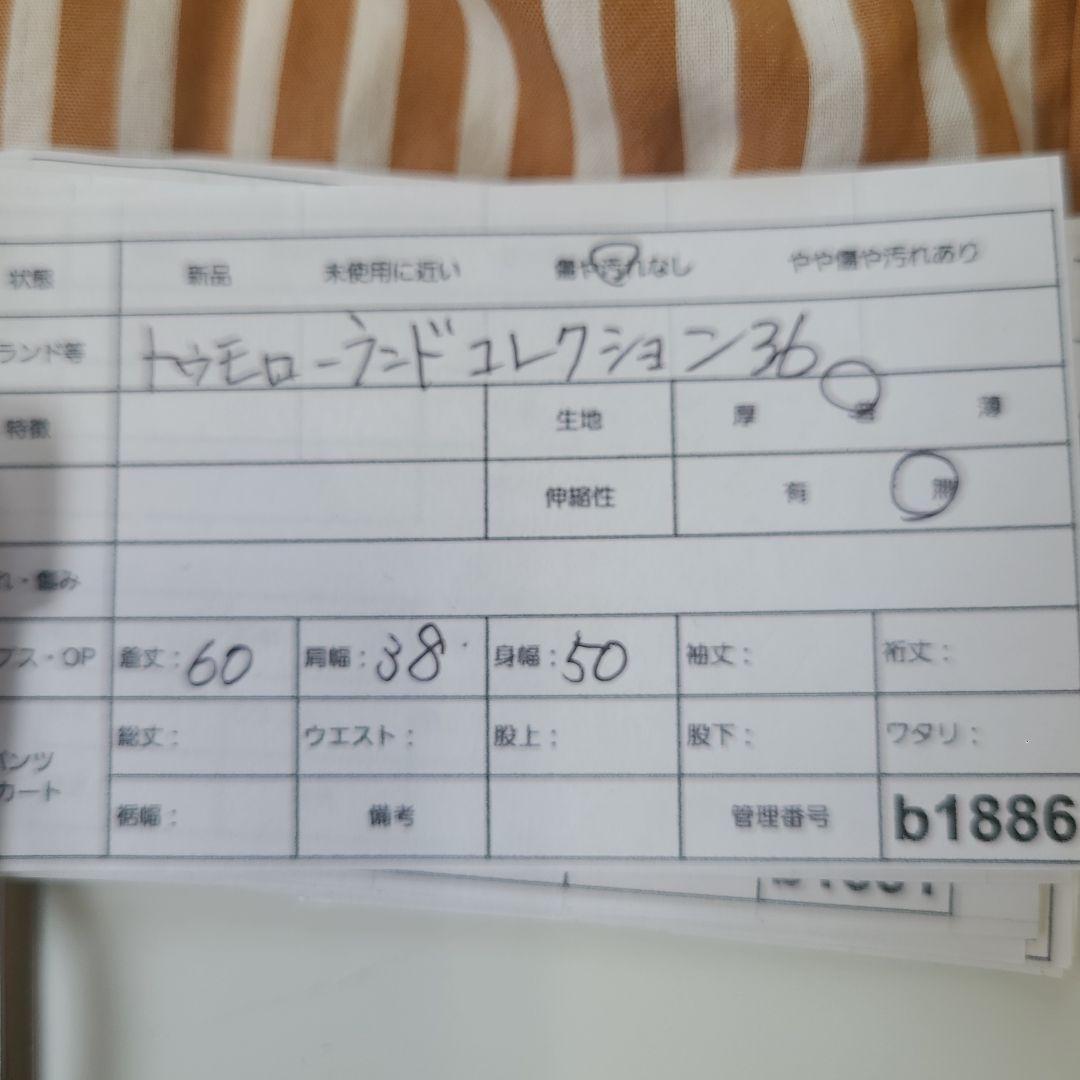 状態 新品 未使用に近い 傷や汚れなし やや傷や汚れあり
ランド等 トゥモローランドコレクション36
特徴 生地 厚 普 薄
伸縮性 有 無
れ・傷み
プス・OP 着丈：60 肩幅：38 身幅：50 袖丈： 裄丈：
パンツ
カート
総丈： ウエスト： 股上： 股下： ワタリ：
裾幅： 備考 管理番号 b1886